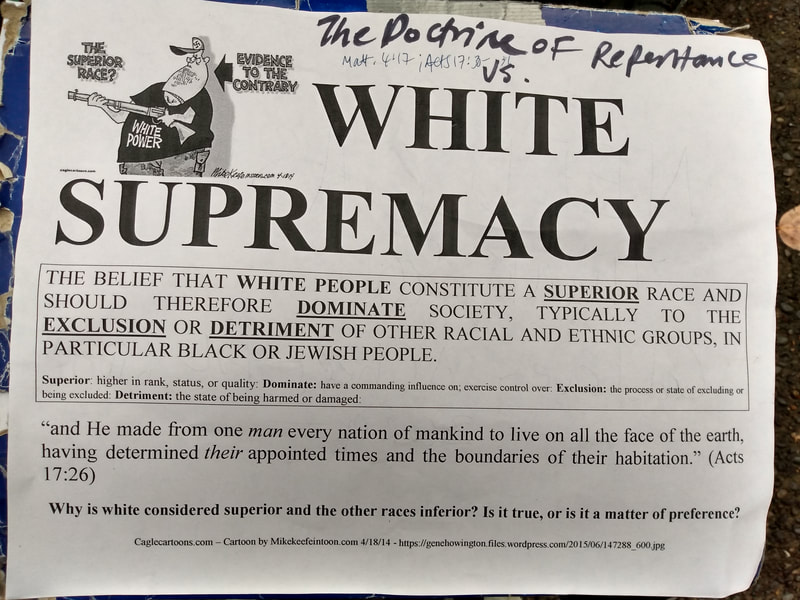 The Doctrine of Repentance
Matt. 4:17 ; Acts 17:30-
vs.
THE SUPERIOR RACE?
EVIDENCE TO THE CONTRARY
WHITE POWER
caglecartoons.com
4-18-14
WHITE
SUPREMACY
THE BELIEF THAT WHITE PEOPLE CONSTITUTE A SUPERIOR RACE AND
SHOULD THEREFORE DOMINATE SOCIETY, TYPICALLY TO THE
EXCLUSION OR DETRIMENT OF OTHER RACIAL AND ETHNIC GROUPS, IN
PARTICULAR BLACK OR JEWISH PEOPLE.
Superior: higher in rank, status, or quality: Dominate: have a commanding influence on; exercise control over: Exclusion: the process or state of excluding or
being excluded: Detriment: the state of being harmed or damaged:
“and He made from one man every nation of mankind to live on all the face of the earth,
having determined their appointed times and the boundaries of their habitation.” (Acts
17:26)
Why is white considered superior and the other races inferior? Is it true, or is it a matter of preference?
Caglecartoons.com – Cartoon by Mikekeefeintoon.com 4/18/14 - https://genehowington.files.wordpress.com/2015/06/147288_600.jpg